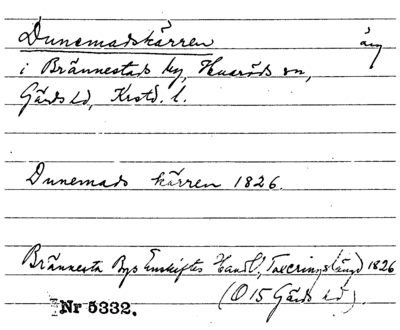 Dunemadskärren äng
i Brännestads by, Huaröds sn,
Gärds hd, Krstd. l.
Dunemads kärren 1826.
Brännesta Bys Enskiftes Handl, Taxerings längd 1826
(O 15 Gärds hd).
Nr 5332.